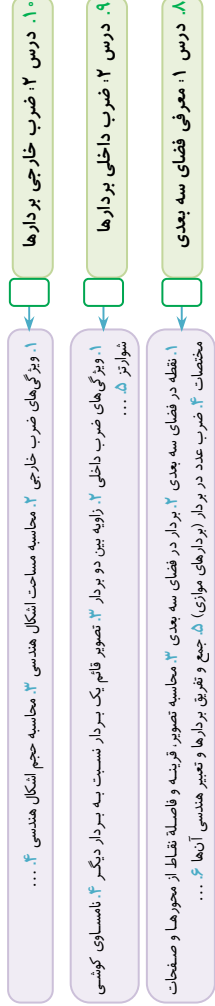 ۸. درس ۱: معرفی فضای سه بعدی
۱. نقطه در فضای سه بعدی ۲. بردار در فضای سه بعدی ۳. محاسبه تصویر، قرینـه و فاصـلۀ نقـاط از محورهـا و صـفحات
مختصات ۴. ضرب عدد در بردار (بردارهای موازی) ۵. جمع و تفریق بردارها و تعبیر هندسی آن‌ها ۶. ...
۹. درس ۲: ضرب داخلی بردارها
۱. ویژگی‌های ضرب داخلی ۲. زاویه بین دو بردار ۳. تصویر قائم یک بـردار نسـبت بـه بـردار دیگـر ۴. نامسـاوی کوشـی
شوارتز ۵. ...
۱۰. درس ۲: ضرب خارجی بردارها
۱. ویژگی‌های ضرب خارجی ۲. محاسبه مساحت اشکال هندسی ۳. محاسبه حجم اشکال هندسی ۴. ...